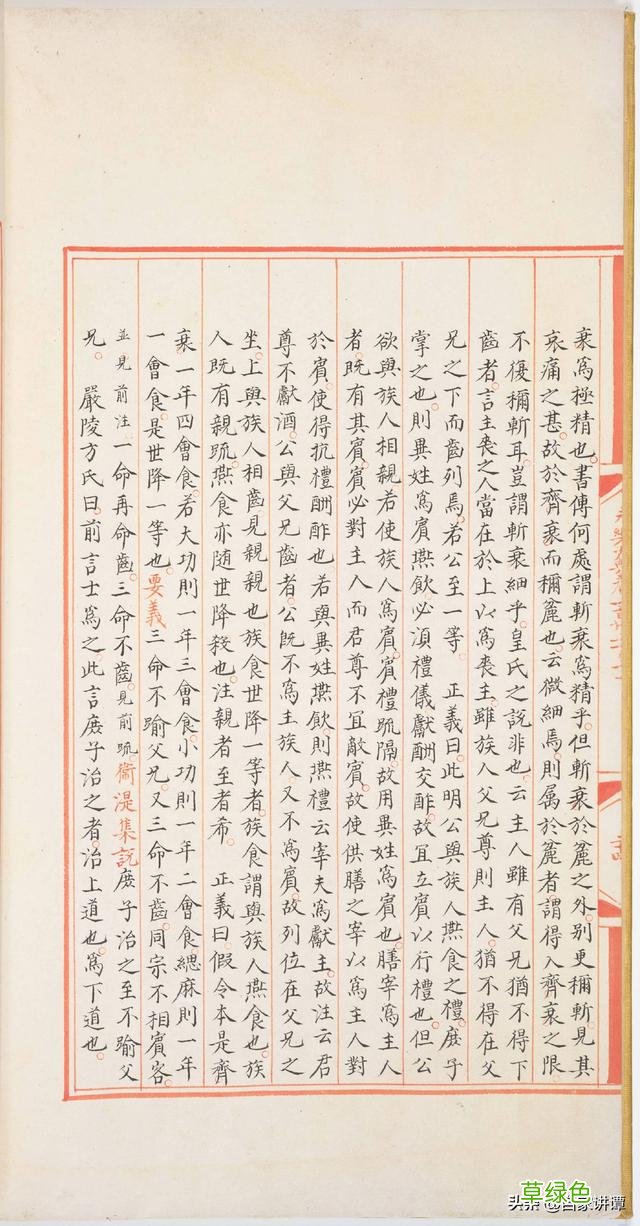 衰為極精也書傳何處謂斬衰為精乎但斬衰於麄之外別更稱斬見其
哀痛之甚故於齊衰而稱麄也云微細焉則属於麄者謂得入齊衰之限
不復稱斬耳豈謂斬衰細乎皇氏之說非也云主人雖有父兄猶不得下
齒者言主喪之人當在於上以為喪主雖族人父兄尊則主人猶不得在父
兄之下而齒列焉若公至一等 正義曰此明公與族人燕食之禮庶子
掌之也則異姓為賓燕飲必湏禮儀獻酬交酢故冝立賓以行禮也但公
欲與族人相親若使族人為賓賓禮疏隔故用異姓為賓也膳宰為主人
者既有其賓賓必對主人而君尊不冝敵賓故使供膳之宰以為主人對
於賓使得抗禮酬酢也若與異姓燕飲則燕禮云宰夫為獻主故注云君
尊不獻酒公與父兄齒者公既不為主族人又不為賓故列位在父兄之
坐上與族人相齒見親親也族食世降一等者族食謂與族人燕食也族
人既有親疏燕食亦随世降殺也注親者至者希 正義曰假令本是齊
衰一年四會食若大功則一年三會食小功則一年二會食緦麻則一年
一會食是世降一等也要義三命不踰父兄又三命不齒同宗不相賓客
並見前注一命再命齒三命不齒見前疏衛湜集說庶子治之至不踰父
兄 嚴陵方氏曰前言士為之此言庶子治之者治上道也為下道也
草绿色
头条 @吕家讲谭